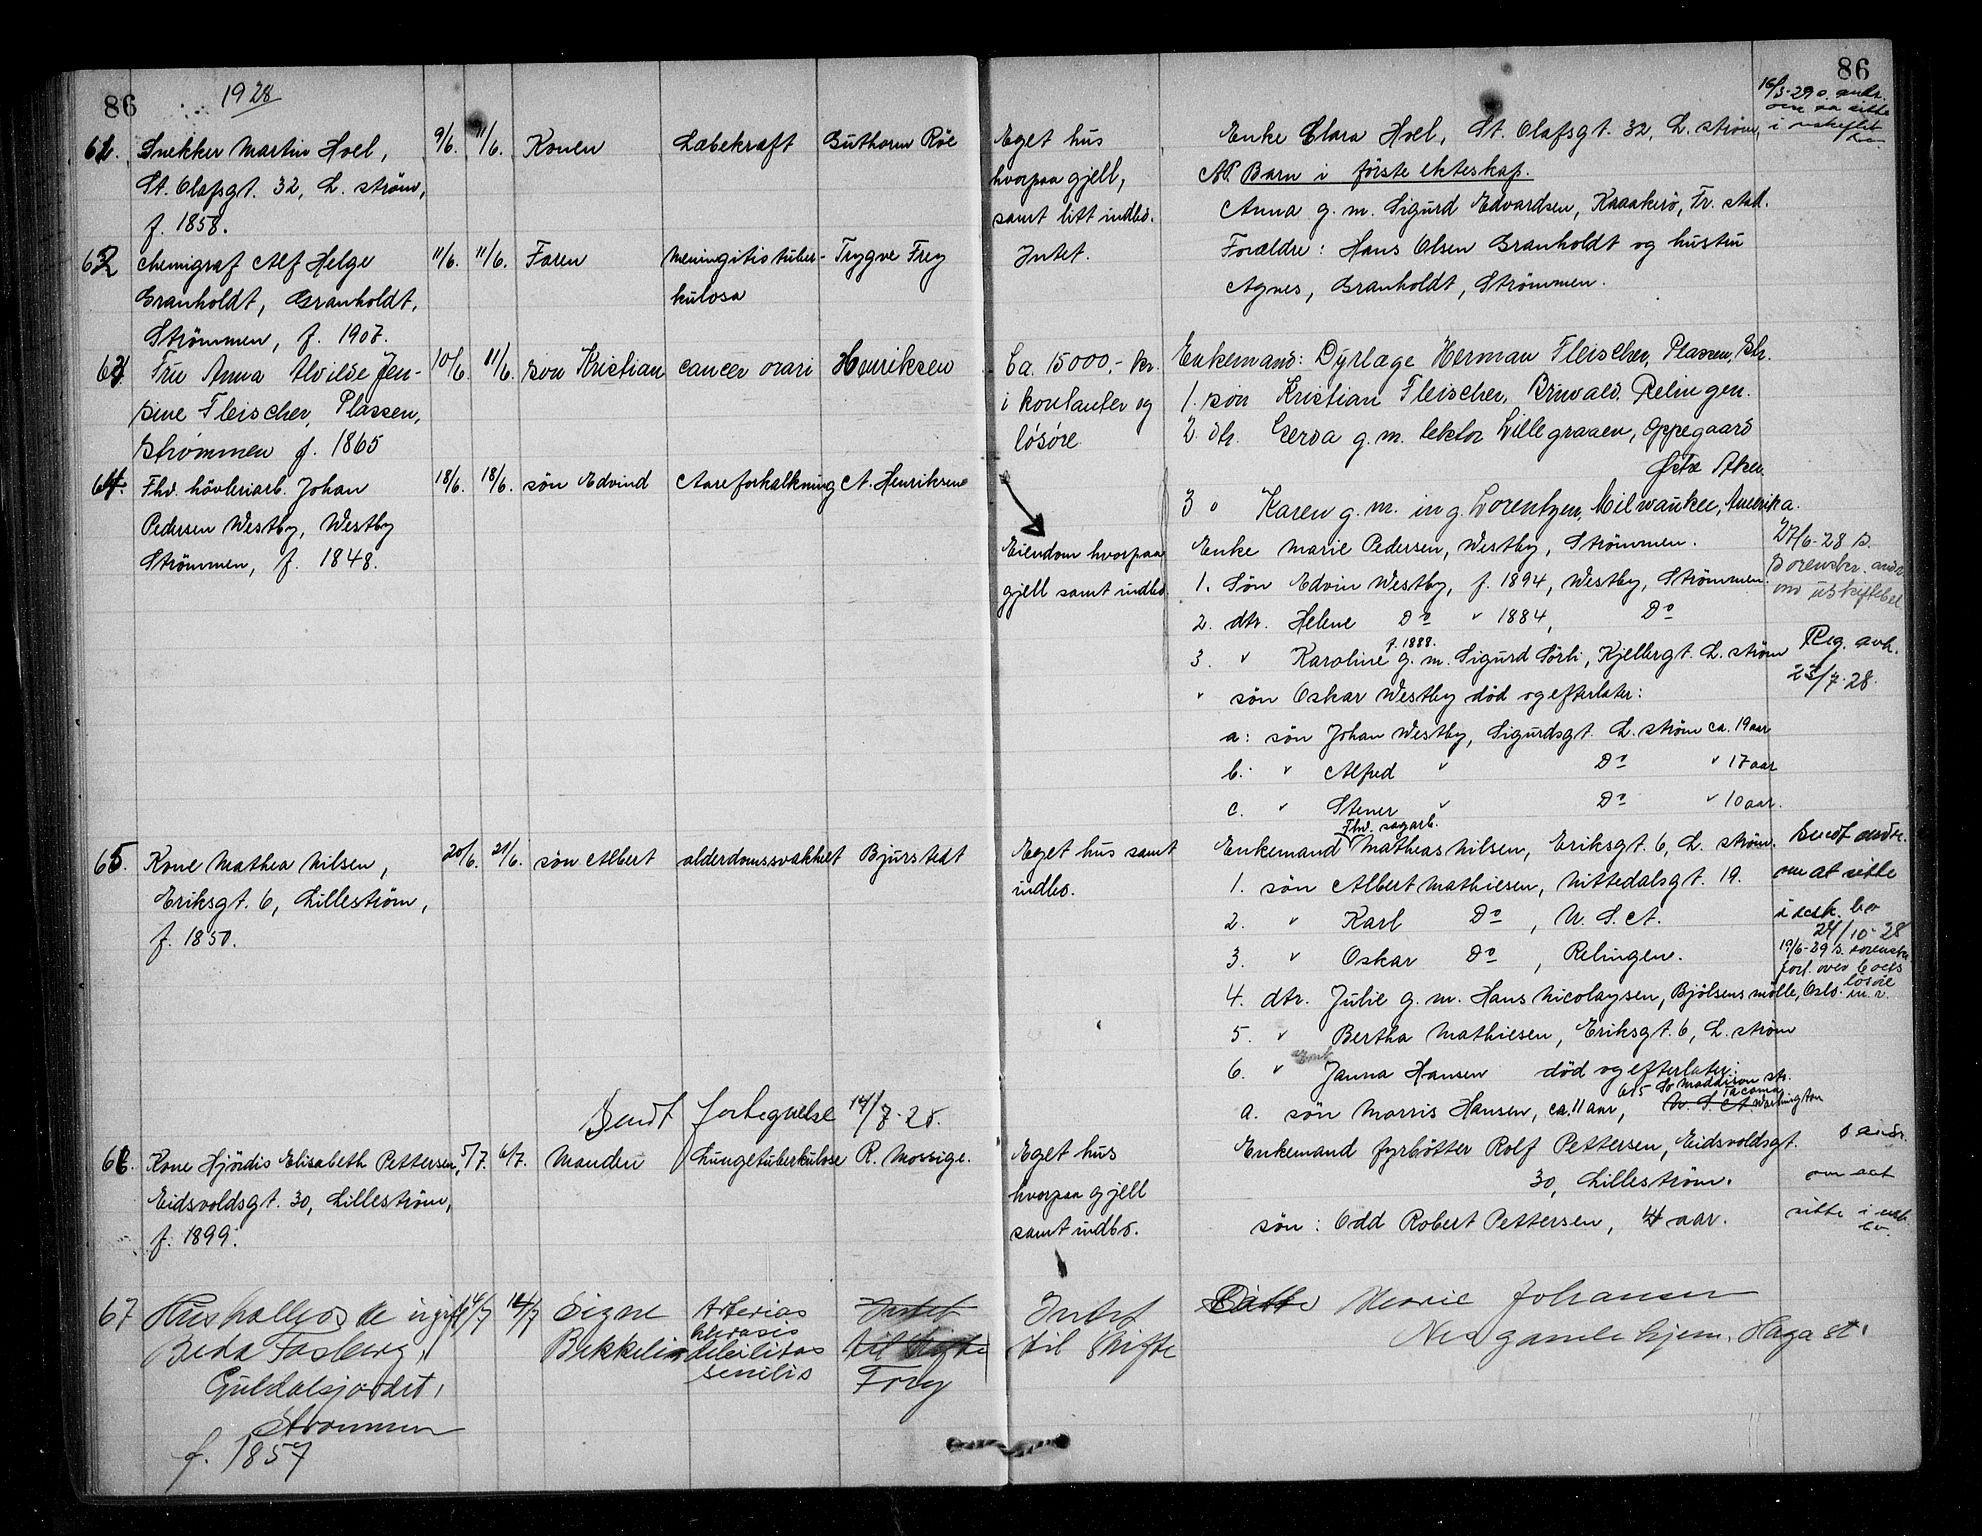 86
1928
86
61. Snekker Martin Hoel, 9/6. 11/6. Konen Læbekræft Guthorm Röe
St. Olafsgt. 32, L. ström,
f. 1858.
Eget hus
hvorpaa gjell,
samt litt indbo.
Enke Clara Hoel, St. Olafsgt. 32, L. ström,
Barn i første ekteskap.
Anna g. m. Sigurd Edvardsen, Kraakerö, Fr. stad.
16/3-29 o. andr.
om aa sitte
i uskiftet
bo
62 Chemigraf Alf Helge 11/6. 11/6. Faren Meningitis tuber- Trygve Frey
Granholdt, Granholdt, kulosa
Strömmen, f. 1907.
Intet.
Forældre: Hans Olsen Granholdt og hustru
Agnes, Granholdt, Strömmen.
63 Fru Anna Alvilde Jen- 10/6. 11/6. Søn Kristian cancer ovari Henriksen
sine Fleischer, Plassen,
Strømmen f. 1865
Ca. 15000,- kr.
i kontanter og
løsøre
Enkemand: Dyrlæge Herman Fleischer, Plassen, Str.
1. søn Kristian Fleischer, Brüvald. Relingen.
2. dtr. Gerda g. m. lektor Lillegraven, Oppegaard
Østre Aker
3 " Karen g. m. ing. Lorentzen, Milwaukee, Amerika.
64. Fhv. hövleriarb. Johan 18/6. 18/6. sön Edvind Aareforkalkning A. Henriksen
Pedersen Westby, Westby
Strömmen, f. 1848.
Eiendom hvorpaa
gjell samt indbo
Enke Marie Pedersen, Westby, Strömmen.
1. Sön Edvin Westby, f. 1894, Westby, Strömmen.
2. dtr. Helene Do " 1884, Do
f. 1888.
3. " Karoline g. m. Sigurd Sörli, Kjellergt. L. ström
" sön Oskar Westby död og efterlater:
a: sön Johan Westby, Sigurdsgt. L. ström ca. 19 aar
b. " Alfred " Do " 17 aar
c. " Stener " Do " 10 aar.
27/6-28 s.
Sorenskr. andr.
om uskiftebev.
Reg. avh.
23/7-28.
65 Kone Mathea Nilsen, 20/6. 21/6. sön Albert alderdomssvakhet Bjurstedt
Eriksgt. 6, Lilleström,
f. 1850.
Eget hus samt
indbo.
Fhv. sagarb.
Enkemand Mathias Nilsen, Eriksgt. 6, L. ström.
1. sön Albert Mathiesen, Nittedalsgt. 19.
2. " Karl Do, U. S. A.
3. " Oskar Do, Relingen.
4. dtr. Julie g. m. Hans Nicolaysen, Bjölsens mölle, Oslo.
5. " Bertha Mathiesen, Eriksgt. 6, L. ström
6. " Janna Hansen död og efterlater:
615 So Maddison str.
Tacoma
a. sön Morris Hansen, ca. 11 aar, U. S. A Washington
Sendt andr.
om at sitte
i usk. bo
24/10-28
19/6-29 s. sorenskr.
fort. over boets
løsøre
m. v.
Sendt fortegnelse 14/7-28.
66. Kone Hjördis Elisabeth Pettersen, 5/7. 6/7. Manden Lungetuberkulose R. Mossige.
Eidsvoldsgt. 30, Lilleström,
f. 1899.
Eget hus
hvorpaa gjell
samt indbo.
Enkemand fyrbötter Rolf Pettersen, Eidsvoldsgt.
30, Lilleström.
sön: Odd Robert Pettersen, 4 aar.
s andr.
om aat
sitte i usk.
bo.
67 Husholderske ugift 14/7 14/7 Signe Arterios
Beda Fasberg, Bekkelien klerosis
Guldalsjordet, debilitas
Strømmen senilis
f. 1857
Intet
til Skifte
Frey
Intet
til Skifte
Datter Marie Johansen
Nes gamlehjem. Haga st.